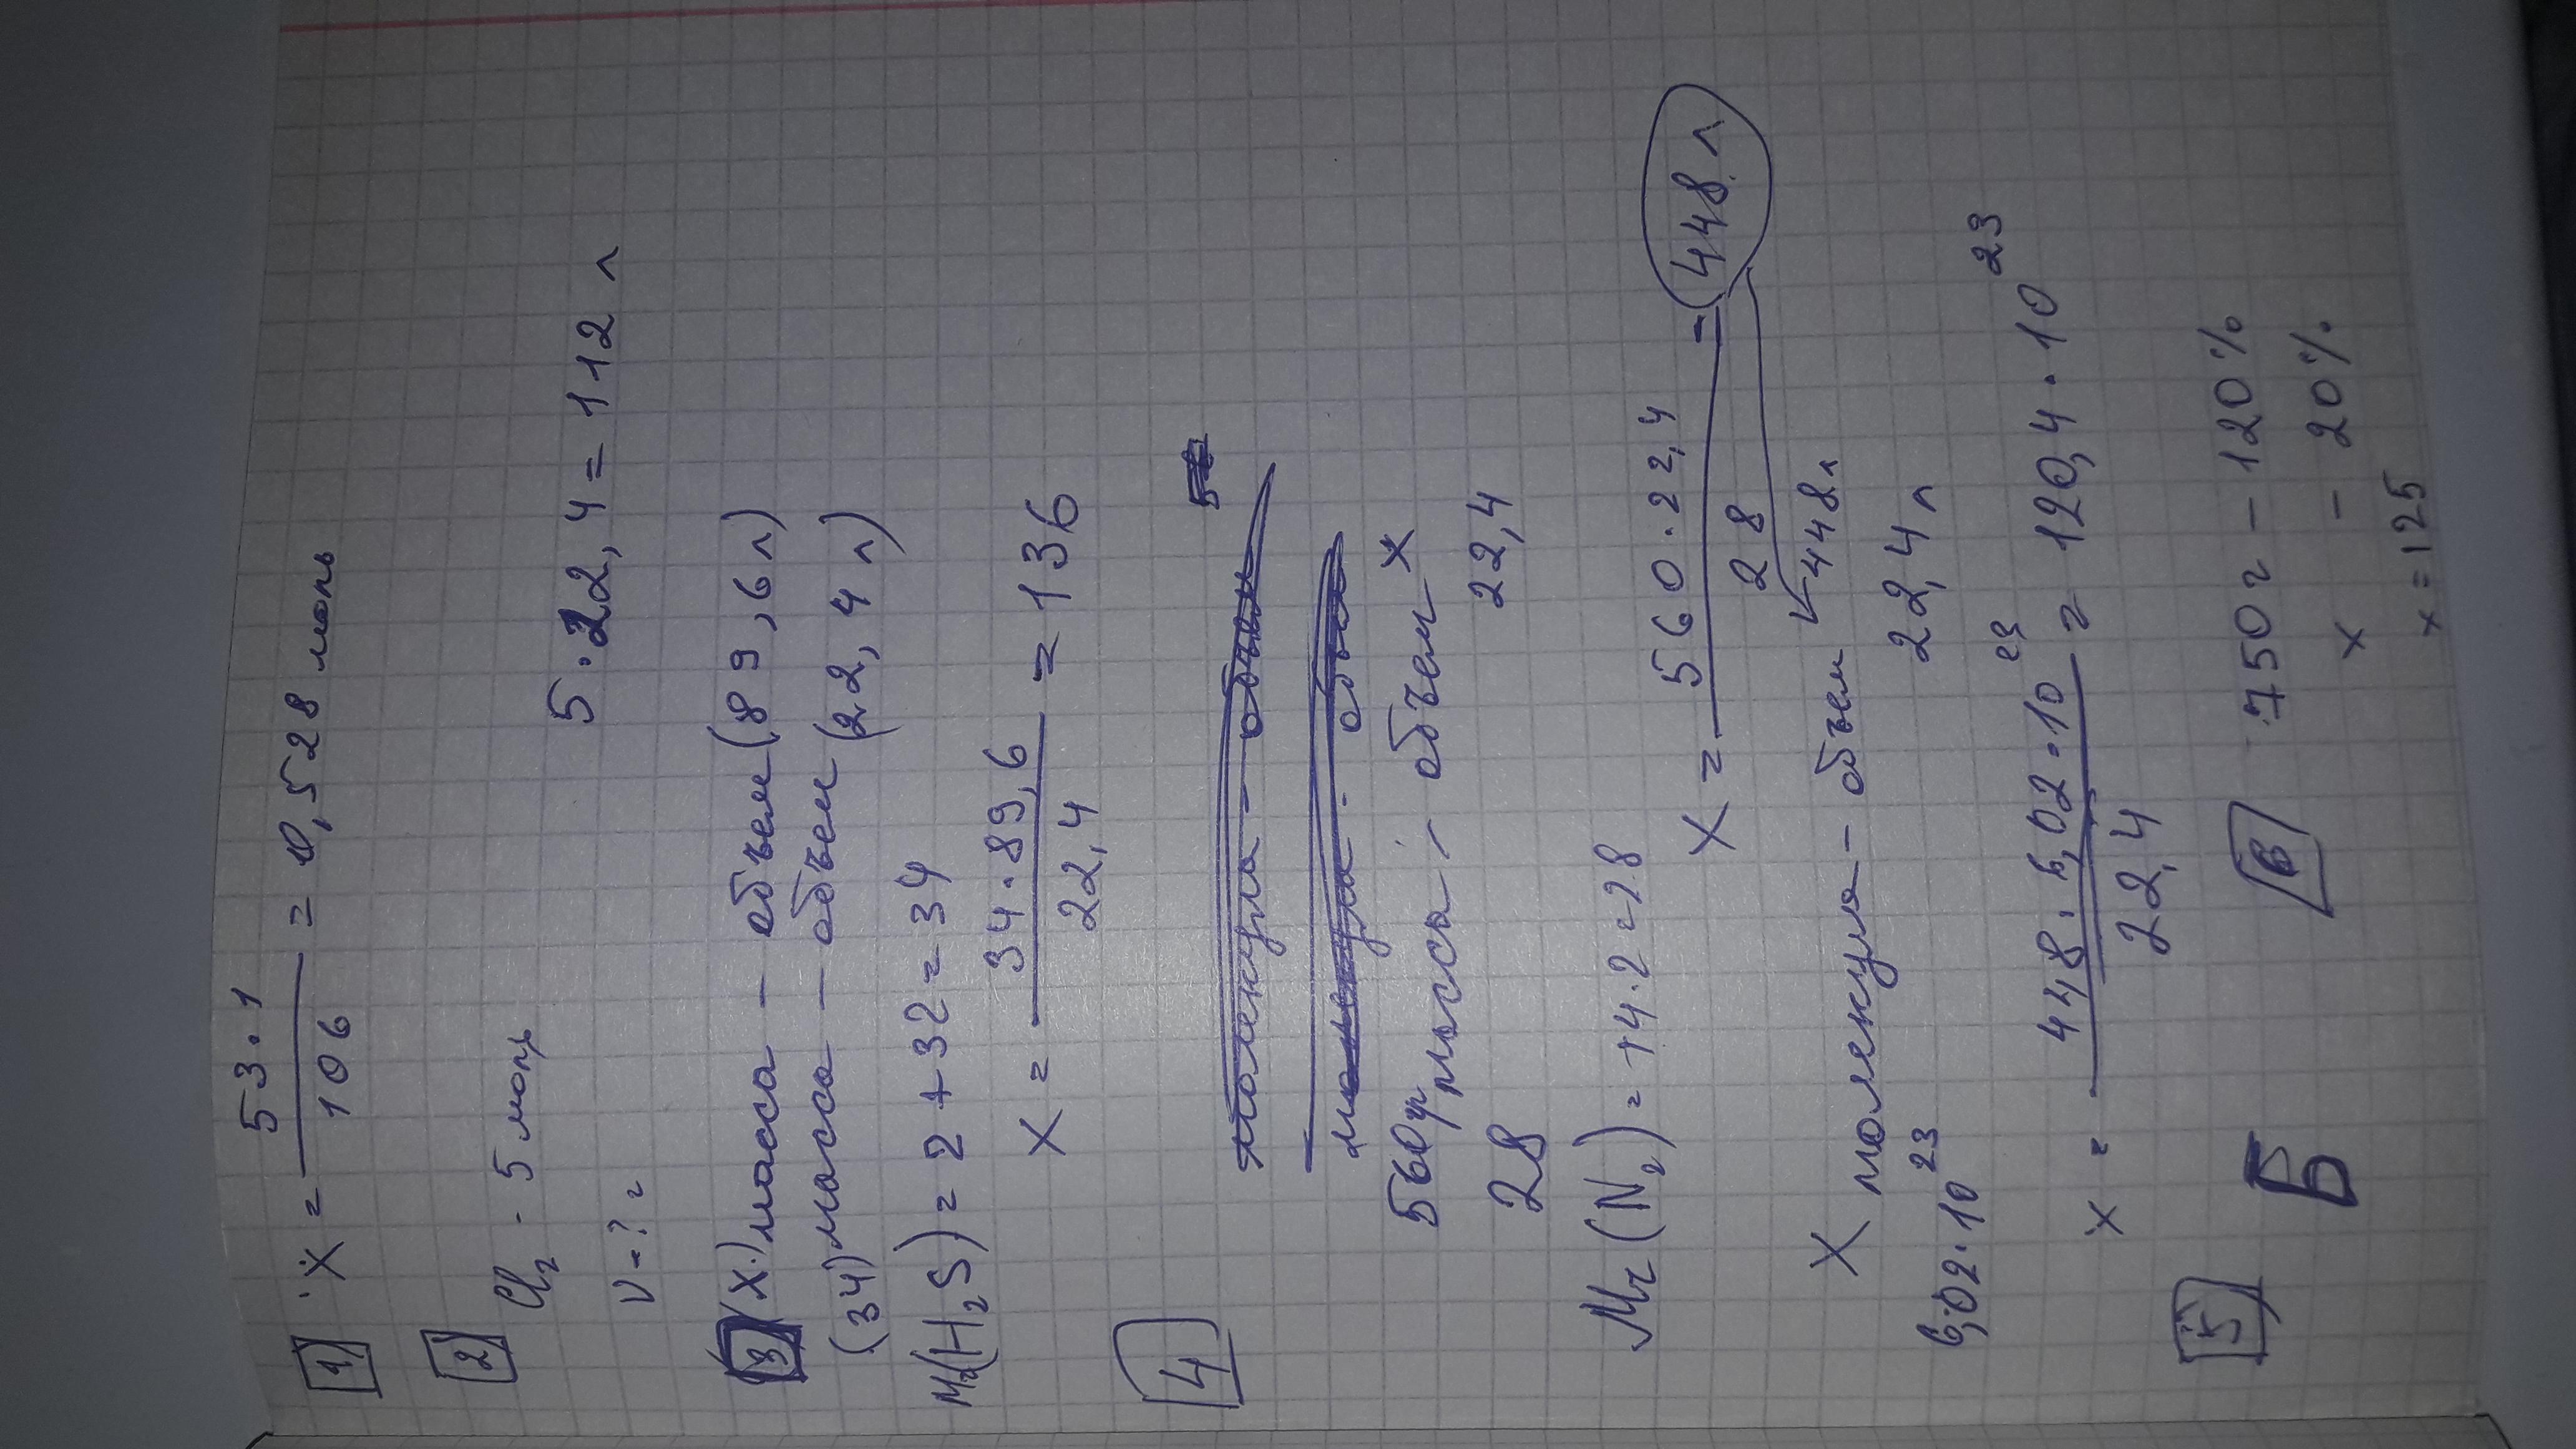 1 X = 53·1 / 106 = 0,528 моль
2 Cl₂ - 5 моль
V - ? =
5·22,4 = 112 л
3 (X) масса - объем (89,6 л)
(34) масса - объем (22,4 л)
Mr(H₂S) = 2 + 32 = 34
X = 34·89,6 / 22,4 = 136
4
560 гр масса - объем X
28 22,4
Mr(N₂) = 14·2 = 28
X = 560·22,4 / 28 = 448 л
X молекула - объем 448 л
6,02·10²³ 22,4 л
X = 448·6,02·10²³ / 22,4 = 120,4·10²³
5 Б
6 750 г - 120%
X - 20%
X = 125